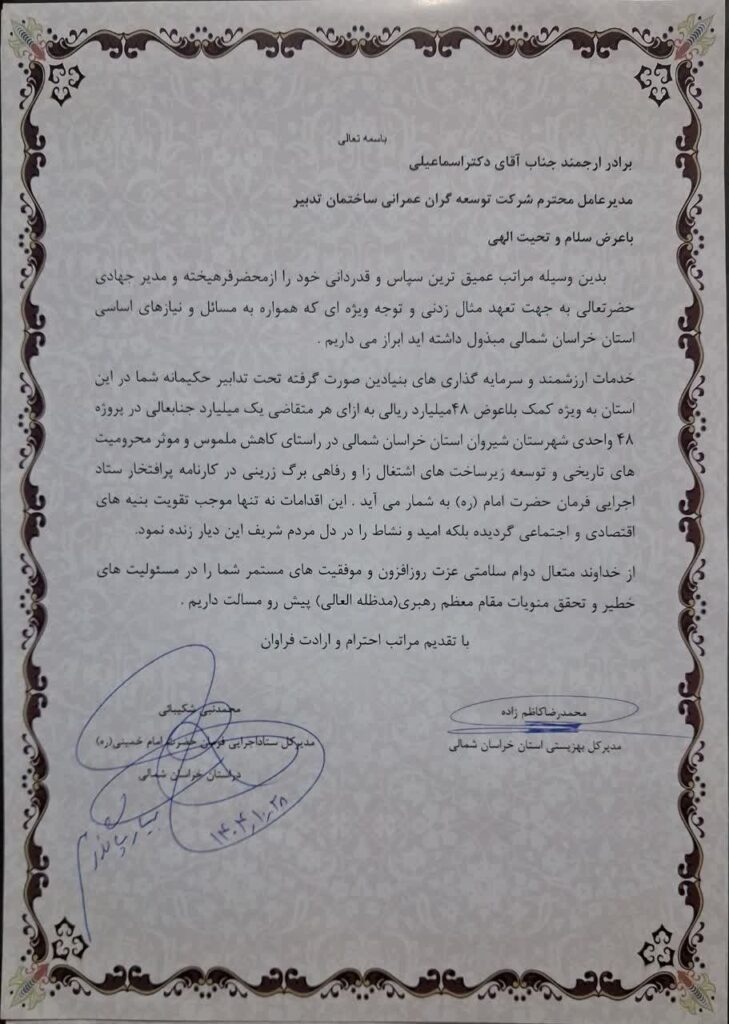 باسمه تعالی
برادر ارجمند جناب آقای دکتراسماعیلی
مدیرعامل محترم شرکت توسعه گران عمرانی ساختمان تدبیر
باعرض سلام و تحیت الهی
بدین وسیله مراتب عمیق ترین سپاس و قدردانی خود را ازمحضرفرهیخته و مدیر جهادی
حضرتعالی به جهت تعهد مثال زدنی و توجه ویژه ای که همواره به مسائل و نیازهای اساسی
استان خراسان شمالی مبذول داشته اید ابراز می داریم .
خدمات ارزشمند و سرمایه گذاری های بنیادین صورت گرفته تحت تدابیر حکیمانه شما در این
استان به ویژه کمک بلاعوض ۴۸میلیارد ریالی به ازای هر متقاضی یک میلیارد جنابعالی در پروژه
۴۸ واحدی شهرستان شیروان استان خراسان شمالی در راستای کاهش ملموس و موثر محرومیت
های تاریخی و توسعه زیرساخت های اشتغال زا و رفاهی برگ زرینی در کارنامه پرافتخار ستاد
اجرایی فرمان حضرت امام (ره) به شمار می آید . این اقدامات نه تنها موجب تقویت بنیه های
اقتصادی و اجتماعی گردیده بلکه امید و نشاط را در دل مردم شریف این دیار زنده نمود.
از خداوند متعال دوام سلامتی عزت روزافزون و موفقیت های مستمر شما را در مسئولیت های
خطیر و تحقق منویات مقام معظم رهبری(مدظله العالی) پیش رو مسالت داریم .
با تقدیم مراتب احترام و ارادت فراوان
محمدرضاکاظم زاده
مدیرکل بهزیستی استان خراسان شمالی
محمدنبی شکیبائی
مدیرکل ستاداجرایی فرمان حضرت امام خمینی(ره)
دراستان خراسان شمالی
۱۴۰۴٫۱۰٫۲۸